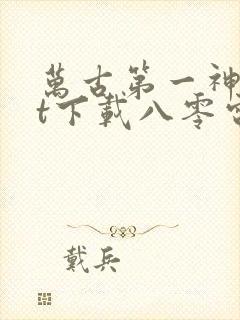 萬古第一神
t下載八零
戴兵